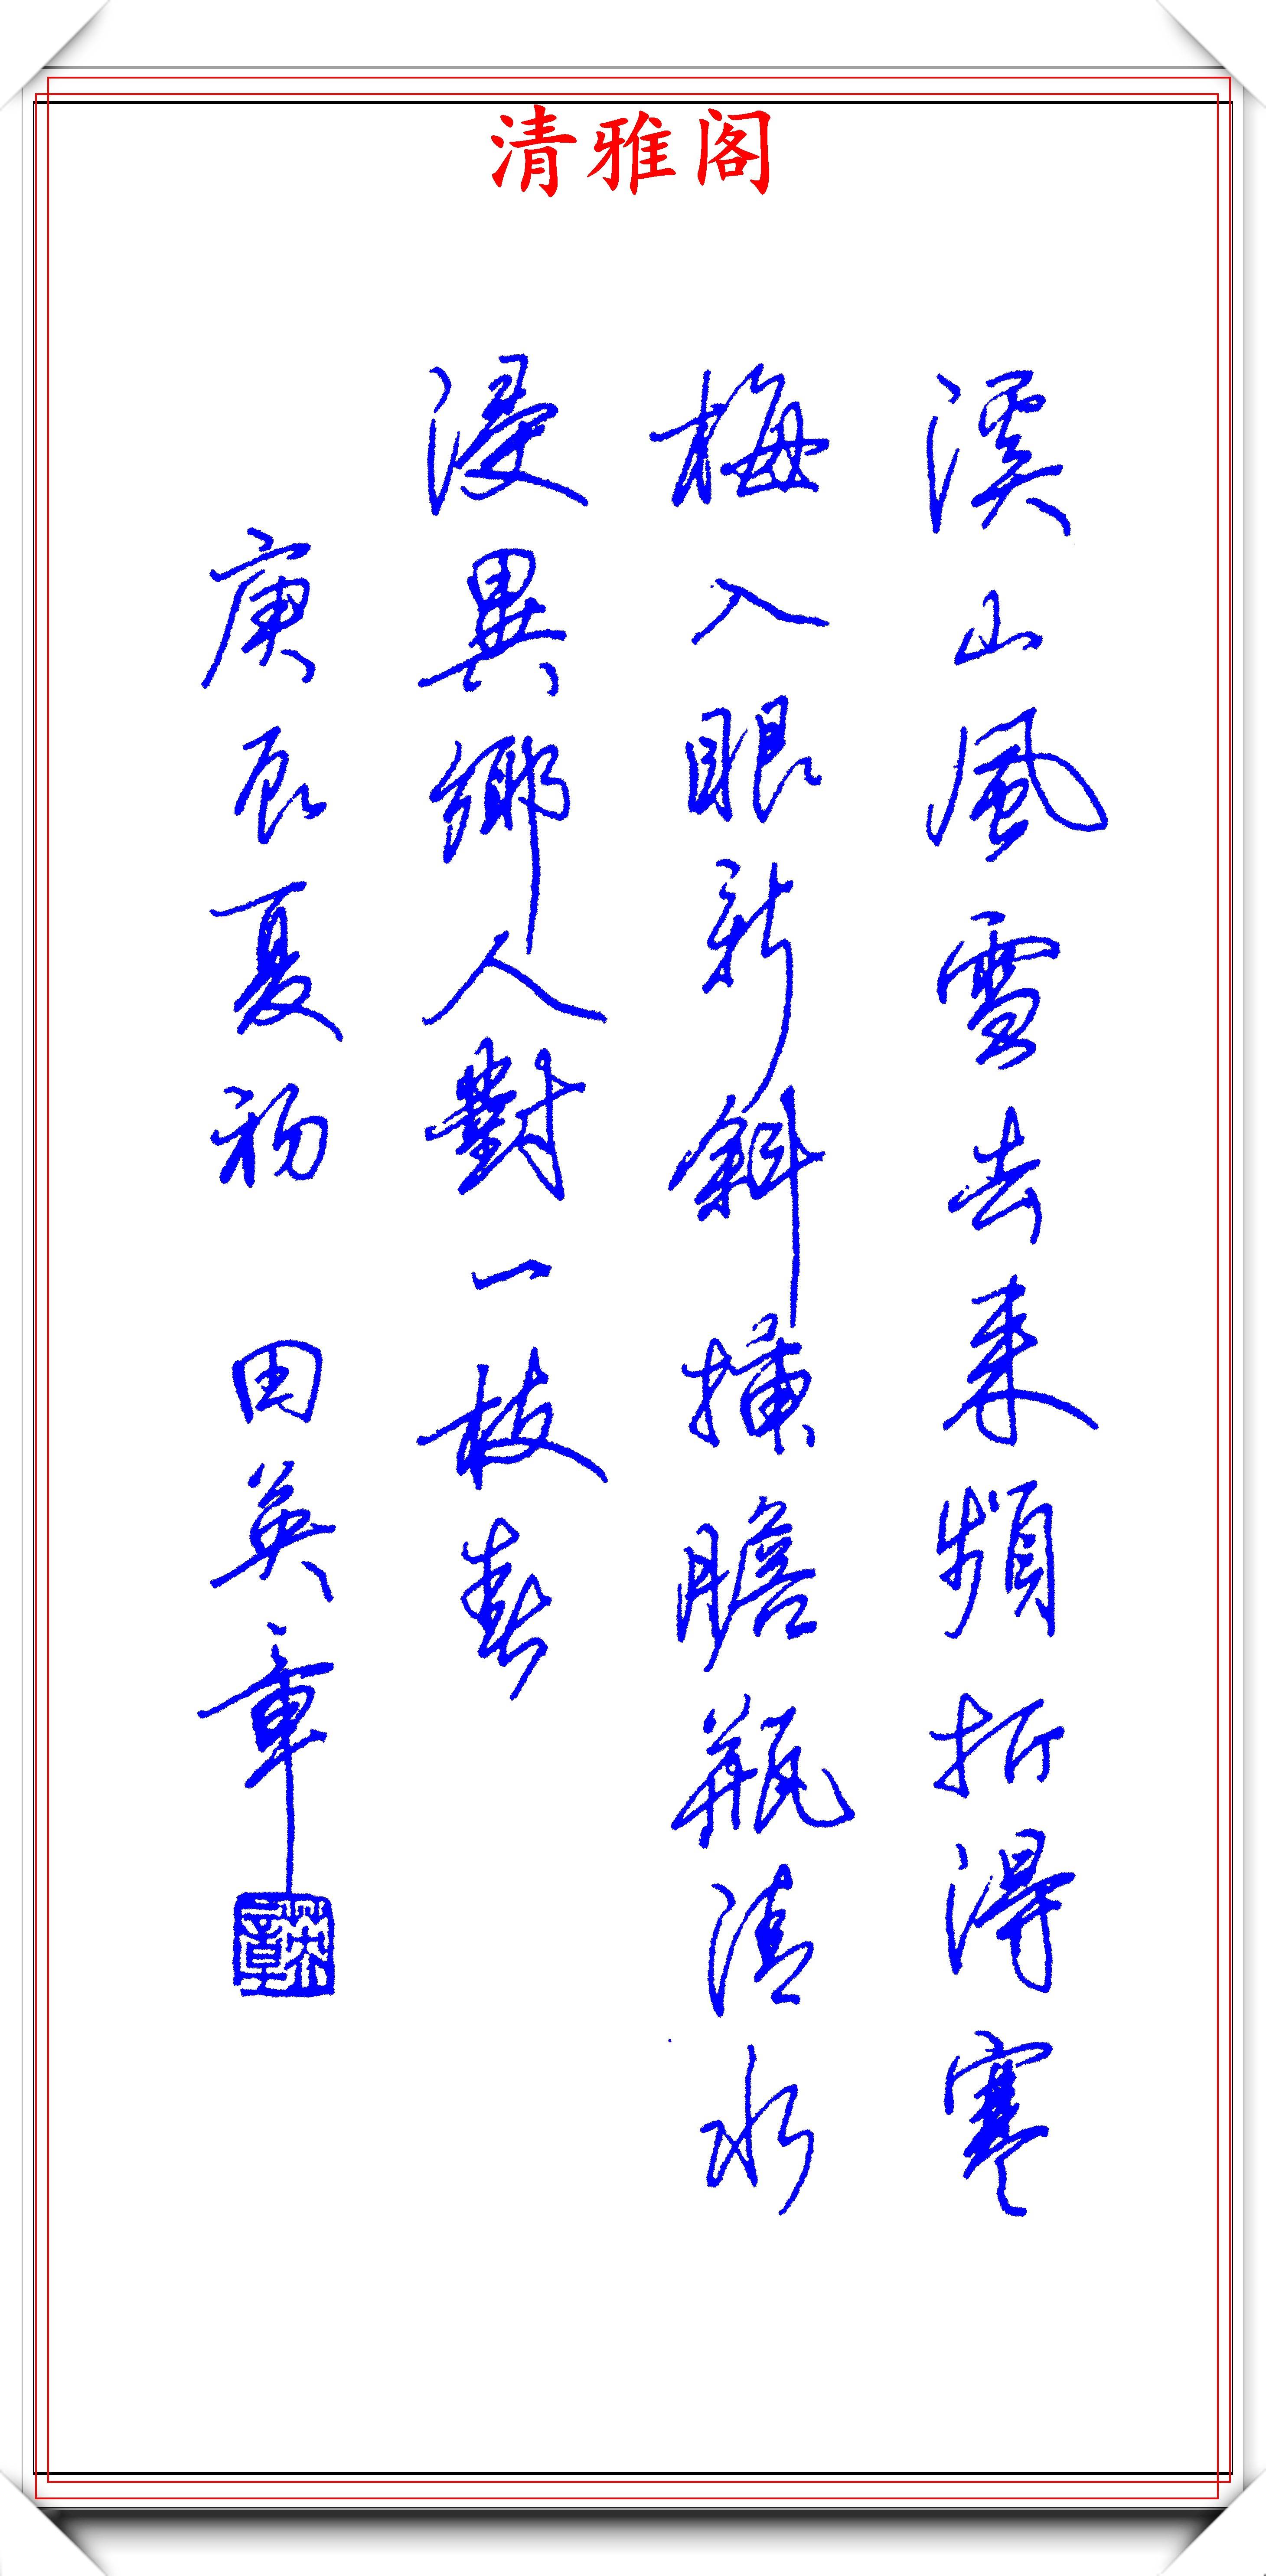 清雅阁
溪山風雪去来頻折得寒
梅入眼新斜插膽瓶清水
浸異鄉人對一枝春
庚辰夏初 田英章
英章